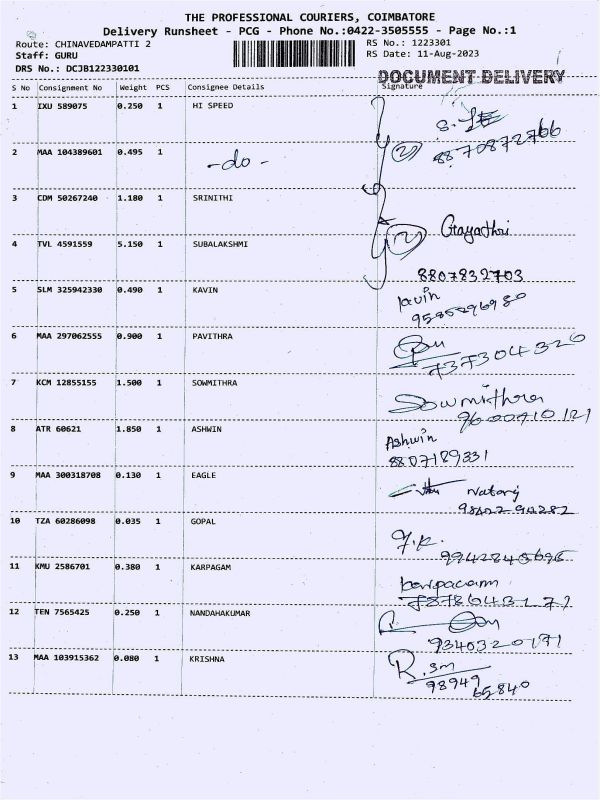 THE PROFESSIONAL COURIERS, COIMBATORE
Delivery Runsheet - PCG - Phone No.:0422-3505555 - Page No.:1
Route: CHINAVEDAMPATTI 2 RS No.: 1223301
Staff: GURU RS Date: 11-Aug-2023
DRS No.: DCJB122330101
DOCUMENT DELIVERY
S No Consignment No Weight PCS Consignee Details Signature
1 IXU 589075 0.250 1 HI SPEED
8870872766
2 MAA 104389601 0.495 1 -do- 2
3 CDM 50267240 1.180 1 SRINITHI
2 Gayathri
4 TVL 4591559 5.150 1 SUBALAKSHMI
8807832703
5 SLM 325942330 0.490 1 KAVIN kavin
6 MAA 297062555 0.900 1 PAVITHRA
737304326
7 KCM 12855155 1.500 1 SOWMITHRA Sowmithra
9600910121
8 ATR 60621 1.850 1 ASHWIN Ashwin
8807189331
9 MAA 300318708 0.130 1 EAGLE Nataraj
10 TZA 60286098 0.035 1 GOPAL
9942845696
11 KMU 2586701 0.380 1 KARPAGAM
12 TEN 7565425 0.250 1 NANDAHAKUMAR
9340320171
13 MAA 103915362 0.080 1 KRISHNA R.sm
98949
65840